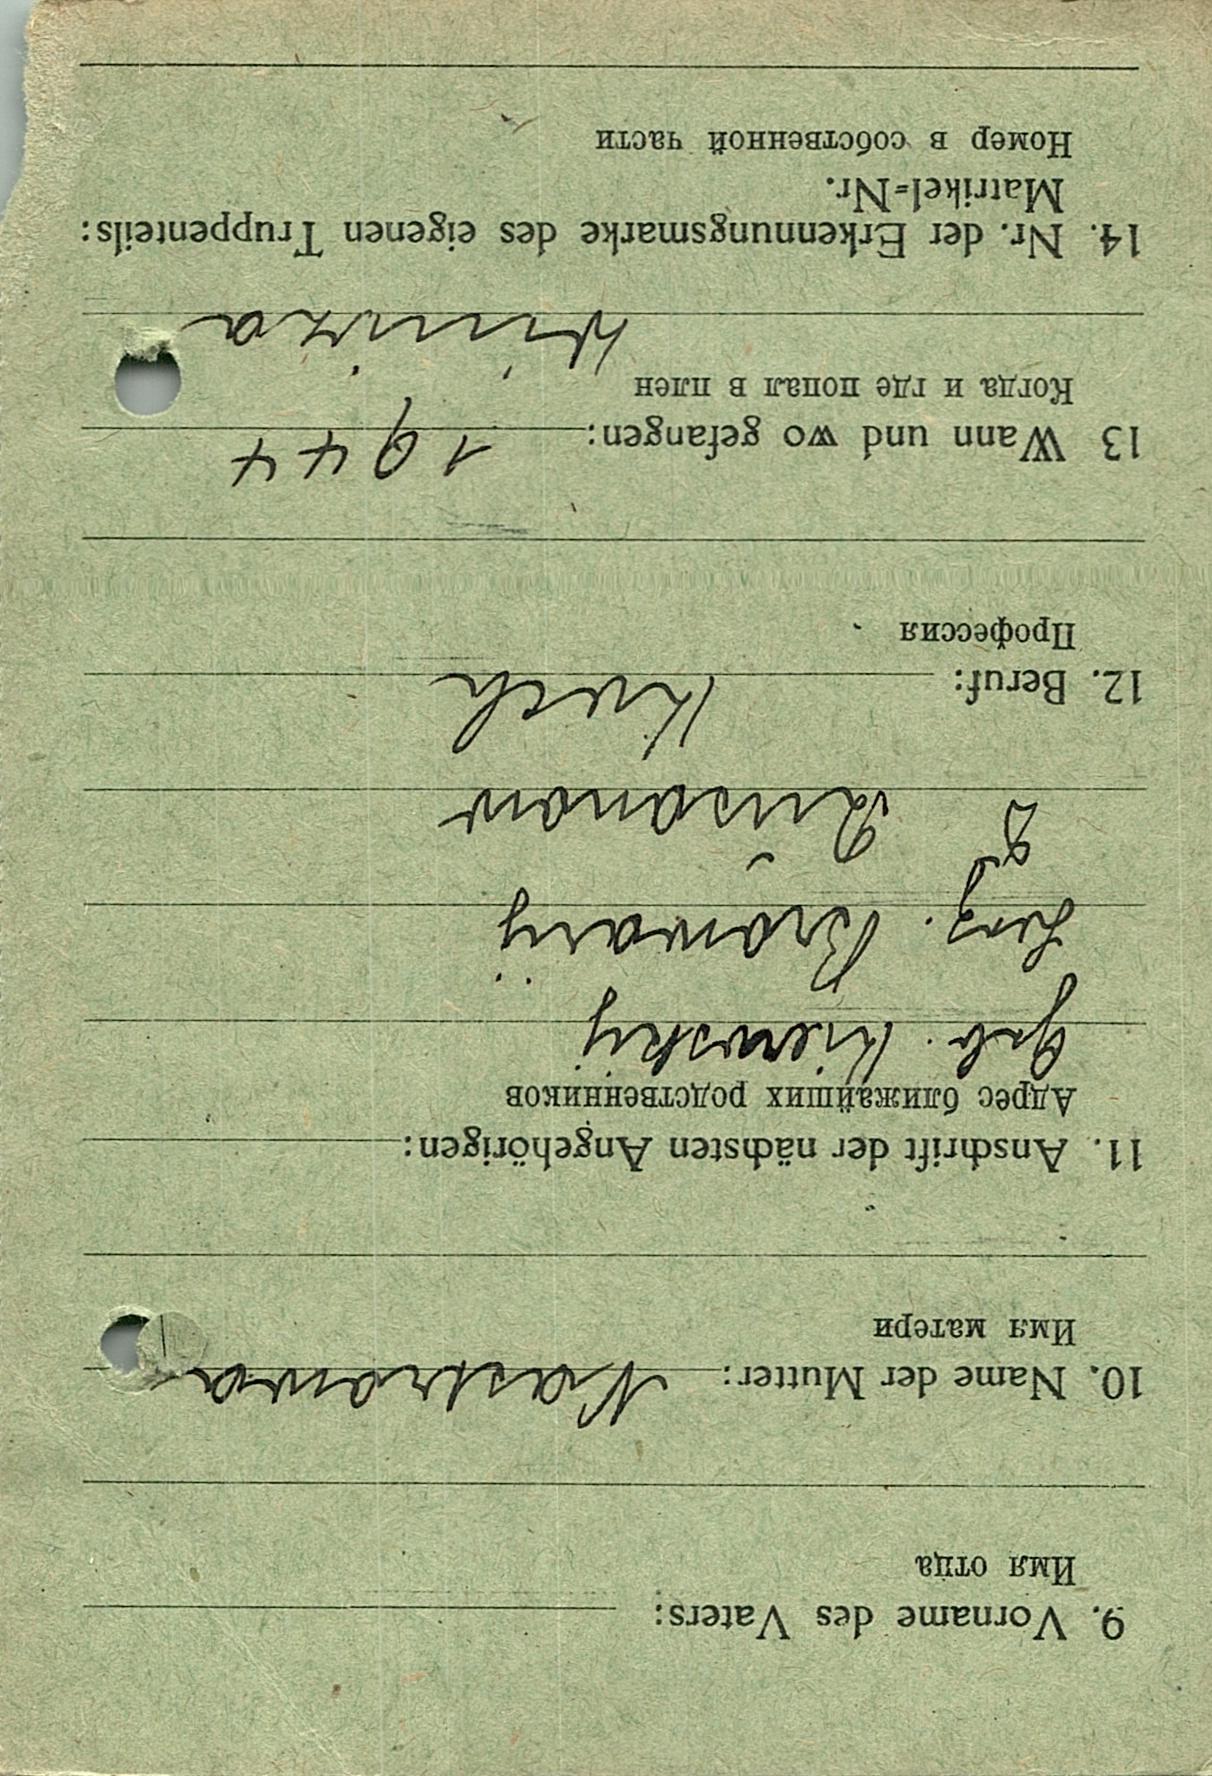 9. Vorname des Vaters:
Имя отца
10. Name der Mutter: Nastranva
Имя матери
11. Anschrift der nächsten Angehörigen:
Адрес ближайших родственников
Geb. Kiewskij
Browarij
Rusanow
12. Beruf: Koch
Профессия
13 Wann und wo gefangen: 1944
Когда и где попал в плен
Winiza
14. Nr. der Erkennungsmarke des eigenen Truppenteils:
Matrikel=Nr.
Номер в собственной части